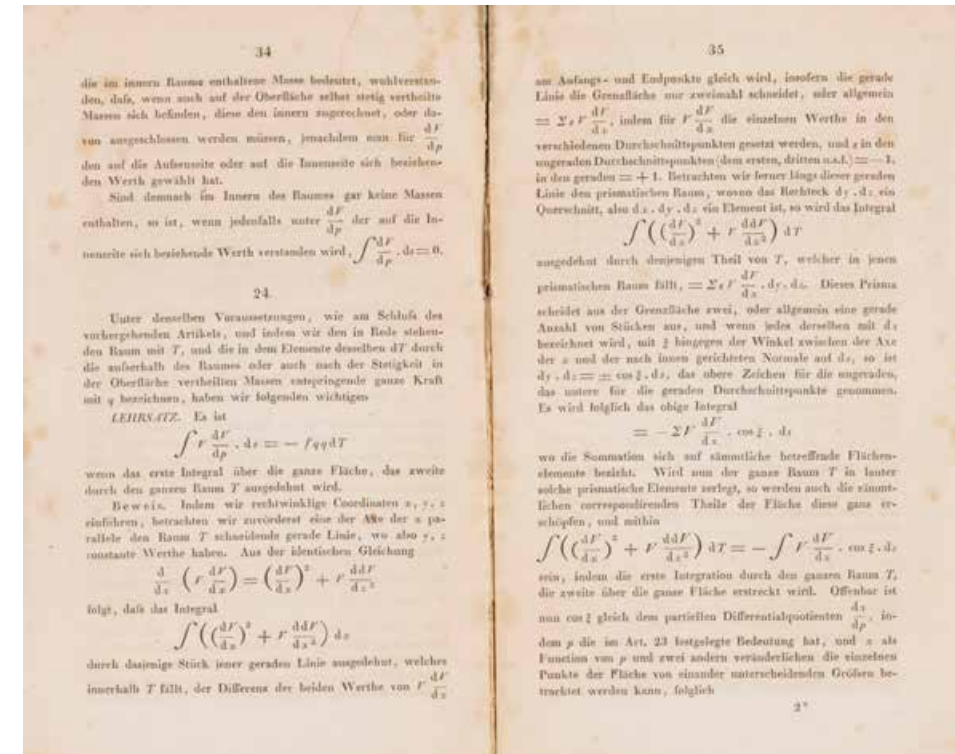 34
die im innern Raume enthaltene Masse bedeutet, wohlverstan-
den, daſs, wenn auch auf der Oberfläche selbst stetig vertheilte
Massen sich befinden, diese den innern zugerechnet, oder da-
von ausgeschlossen werden müssen, jenachdem man für dV/dp
den auf die Auſsenseite oder auf die Innenseite sich beziehen-
den Werth gewählt hat.
Sind demnach im Innern des Raumes gar keine Massen
enthalten, so ist, wenn jedenfalls unter dV/dp der auf die In-
nenseite sich beziehende Werth verstanden wird, ∫ dV/dp . ds = 0.
24.
Unter denselben Voraussetzungen, wie am Schluſs des
vorhergehenden Artikels, und indem wir den in Rede stehen-
den Raum mit T, und die in dem Elemente desselben dT durch
die auſserhalb des Raumes oder auch nach der Stetigkeit in
der Oberfläche vertheilten Massen entspringende ganze Kraft
mit q bezeichnen, haben wir folgenden wichtigen
LEHRSATZ. Es ist
∫ V dV/dp . ds = — ∫ qq dT
wenn das erste Integral über die ganze Fläche, das zweite
durch den ganzen Raum T ausgedehnt wird.
Beweis. Indem wir rechtwinklige Coordinaten x, y, z
einführen, betrachten wir zuvörderst eine der Axe der x pa-
rallele den Raum T schneidende gerade Linie, wo also y, z
constante Werthe haben. Aus der identischen Gleichung
d/dx (V dV/dx) = (dV/dx)² + V ddV/dx²
folgt, daſs das Integral
∫ ((dV/dx)² + V ddV/dx²) dx
durch dasjenige Stück jener geraden Linie ausgedehnt, welches
innerhalb T fällt, der Differenz der beiden Werthe von V dV/dx
35
am Anfangs- und Endpunkte gleich wird, insofern die gerade
Linie die Grenzfläche nur zweimahl schneidet, oder allgemein
= Σ ε V dV/dx, indem für V dV/dx die einzelnen Werthe in den
verschiedenen Durchschnittspunkten gesetzt werden, und ε in den
ungeraden Durchschnittspunkten (dem ersten, dritten u.s.f.) = — 1,
in den geraden = + 1. Betrachten wir ferner längs dieser geraden
Linie den prismatischen Raum, wovon das Rechteck dy . dz ein
Querschnitt, also dx . dy . dz ein Element ist, so wird das Integral
∫ ((dV/dx)² + V ddV/dx²) dT
ausgedehnt durch denjenigen Theil von T, welcher in jenen
prismatischen Raum fällt, = Σ ε V dV/dx . dy . dz. Dieses Prisma
scheidet aus der Grenzfläche zwei, oder allgemein eine gerade
Anzahl von Stücken aus, und wenn jedes derselben mit ds
bezeichnet wird, mit ξ hingegen der Winkel zwischen der Axe
der x und der nach innen gerichteten Normale auf ds, so ist
dy . dz = ± cos ξ . ds, das obere Zeichen für die ungeraden,
das untere für die geraden Durchschnittspunkte genommen.
Es wird folglich das obige Integral
= — Σ V dV/dx . cos ξ . ds
wo die Summation sich auf sämmtliche betreffende Flächen-
elemente bezieht. Wird nun der ganze Raum T in lauter
solche prismatische Elemente zerlegt, so werden auch die sämmt-
lichen correspondirenden Theile der Fläche diese ganz er-
schöpfen, und mithin
∫ ((dV/dx)² + V ddV/dx²) dT = — ∫ V dV/dx . cos ξ . ds
sein, indem die erste Integration durch den ganzen Raum T,
die zweite über die ganze Fläche erstreckt wird. Offenbar ist
nun cos ξ gleich dem partiellen Differentialquotienten dx/dp, in-
dem p die im Art. 23 festgelegte Bedeutung hat, und x als
Function von p und zwei andern veränderlichen die einzelnen
Punkte der Fläche von einander unterscheidenden Gröſsen be-
trachtet werden kann, folglich
2*